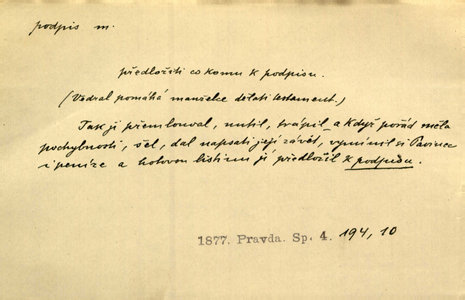 podpis m.
předložiti co komu k podpisu.
(Vodral pomáhá manželce dělati testament.)
Tak ji přemlouval, nutil, trápil a když pořád měla
pochybnosti, šel, dal napsati její závět, vymínil si
i peníze a hotovou listinu jí předložil k podpisu.
1877. Pravda. Sp. 4. 194, 10